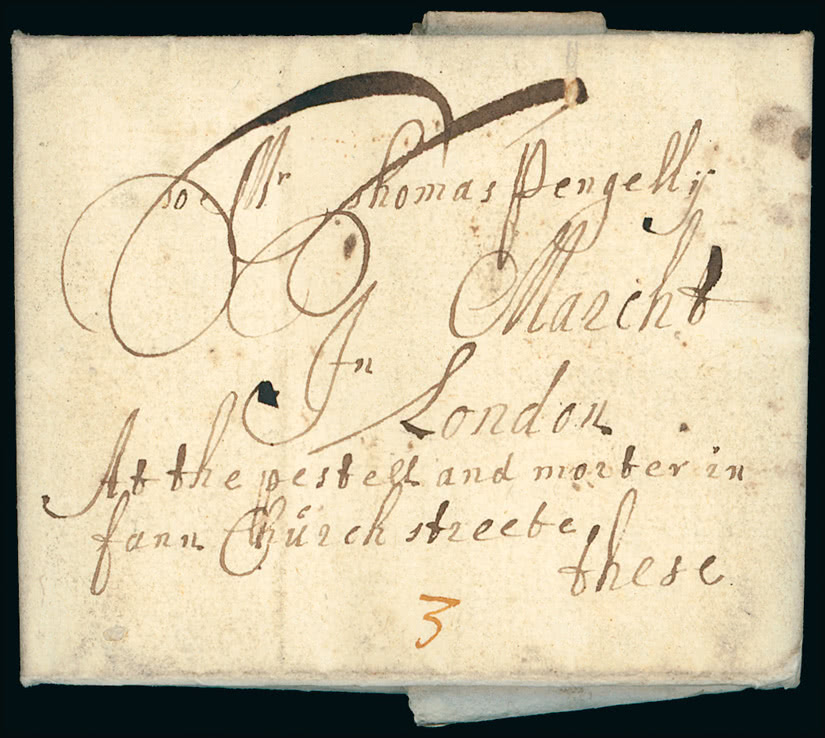 To Mr Thomas Pengelly
Marcht
In
London
At the pestell and morter in
fann Church streete
these
3